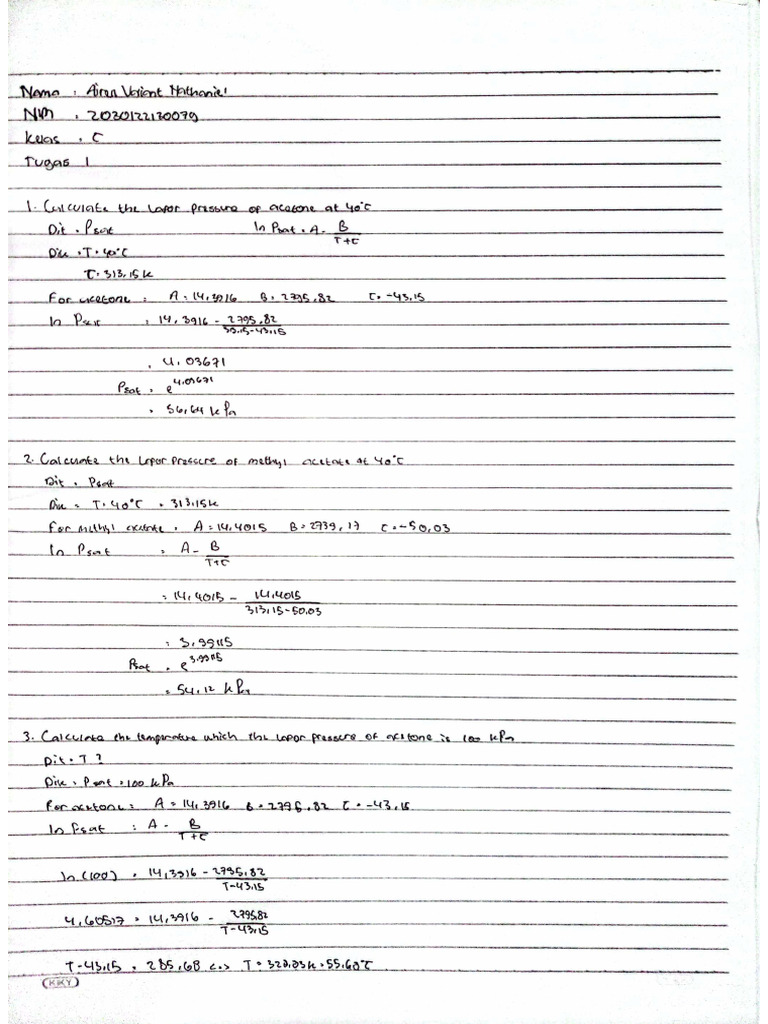 Nama : Airan Variant Nathaniel
NIM : 2030122130079
Kelas : C
Tugas 1
1. Calculate the Vapor pressure of acetone at 40°C
Dit : Psat ln Psat = A - B / T+C
Dik : T = 40°C
T = 313,15 K
For acetone : A = 14,3916 B = 2795,82 C = -43,15
ln Psat = 14,3916 - 2795,82 / 313,15-43,15
= 4,03671
Psat = e^4,03671
= 56,64 kPa
2. Calculate the Vapor pressure of methyl acetate at 40°C
Dit : Psat
Dik = T = 40°C = 313,15 K
For methyl acetate : A = 14,4015 B = 2739,17 C = -50,03
ln Psat = A - B / T+C
= 14,4015 - 14,4015 / 313,15-50,03
= 3,99115
Psat = e^3,99115
= 54,12 kPa
3. Calculate the temperature which the Vapor pressure of acetone is 100 kPa
Dit : T ?
Dik : Psat = 100 kPa
For acetone = A = 14,3916 B = 2795,82 C = -43,15
ln Psat : A - B / T+C
ln (100) = 14,3916 - 2795,82 / T-43,15
4,60517 = 14,3916 - 2795,82 / T-43,15
T-43,15 = 285,68 <=> T = 328,83 K = 55,68°C
KKY